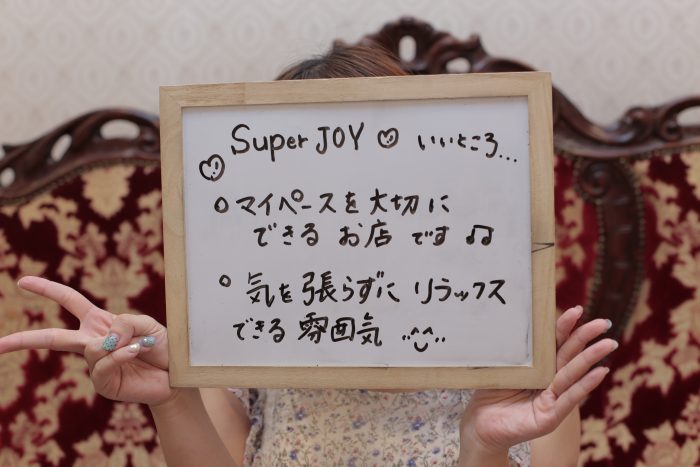 Super JOY ♡ いいところ...
♡
○ マイペースを大切に
できる お店 です ♫
○ 気を張らずに リラックス
できる 雰囲気 ..^‿^..